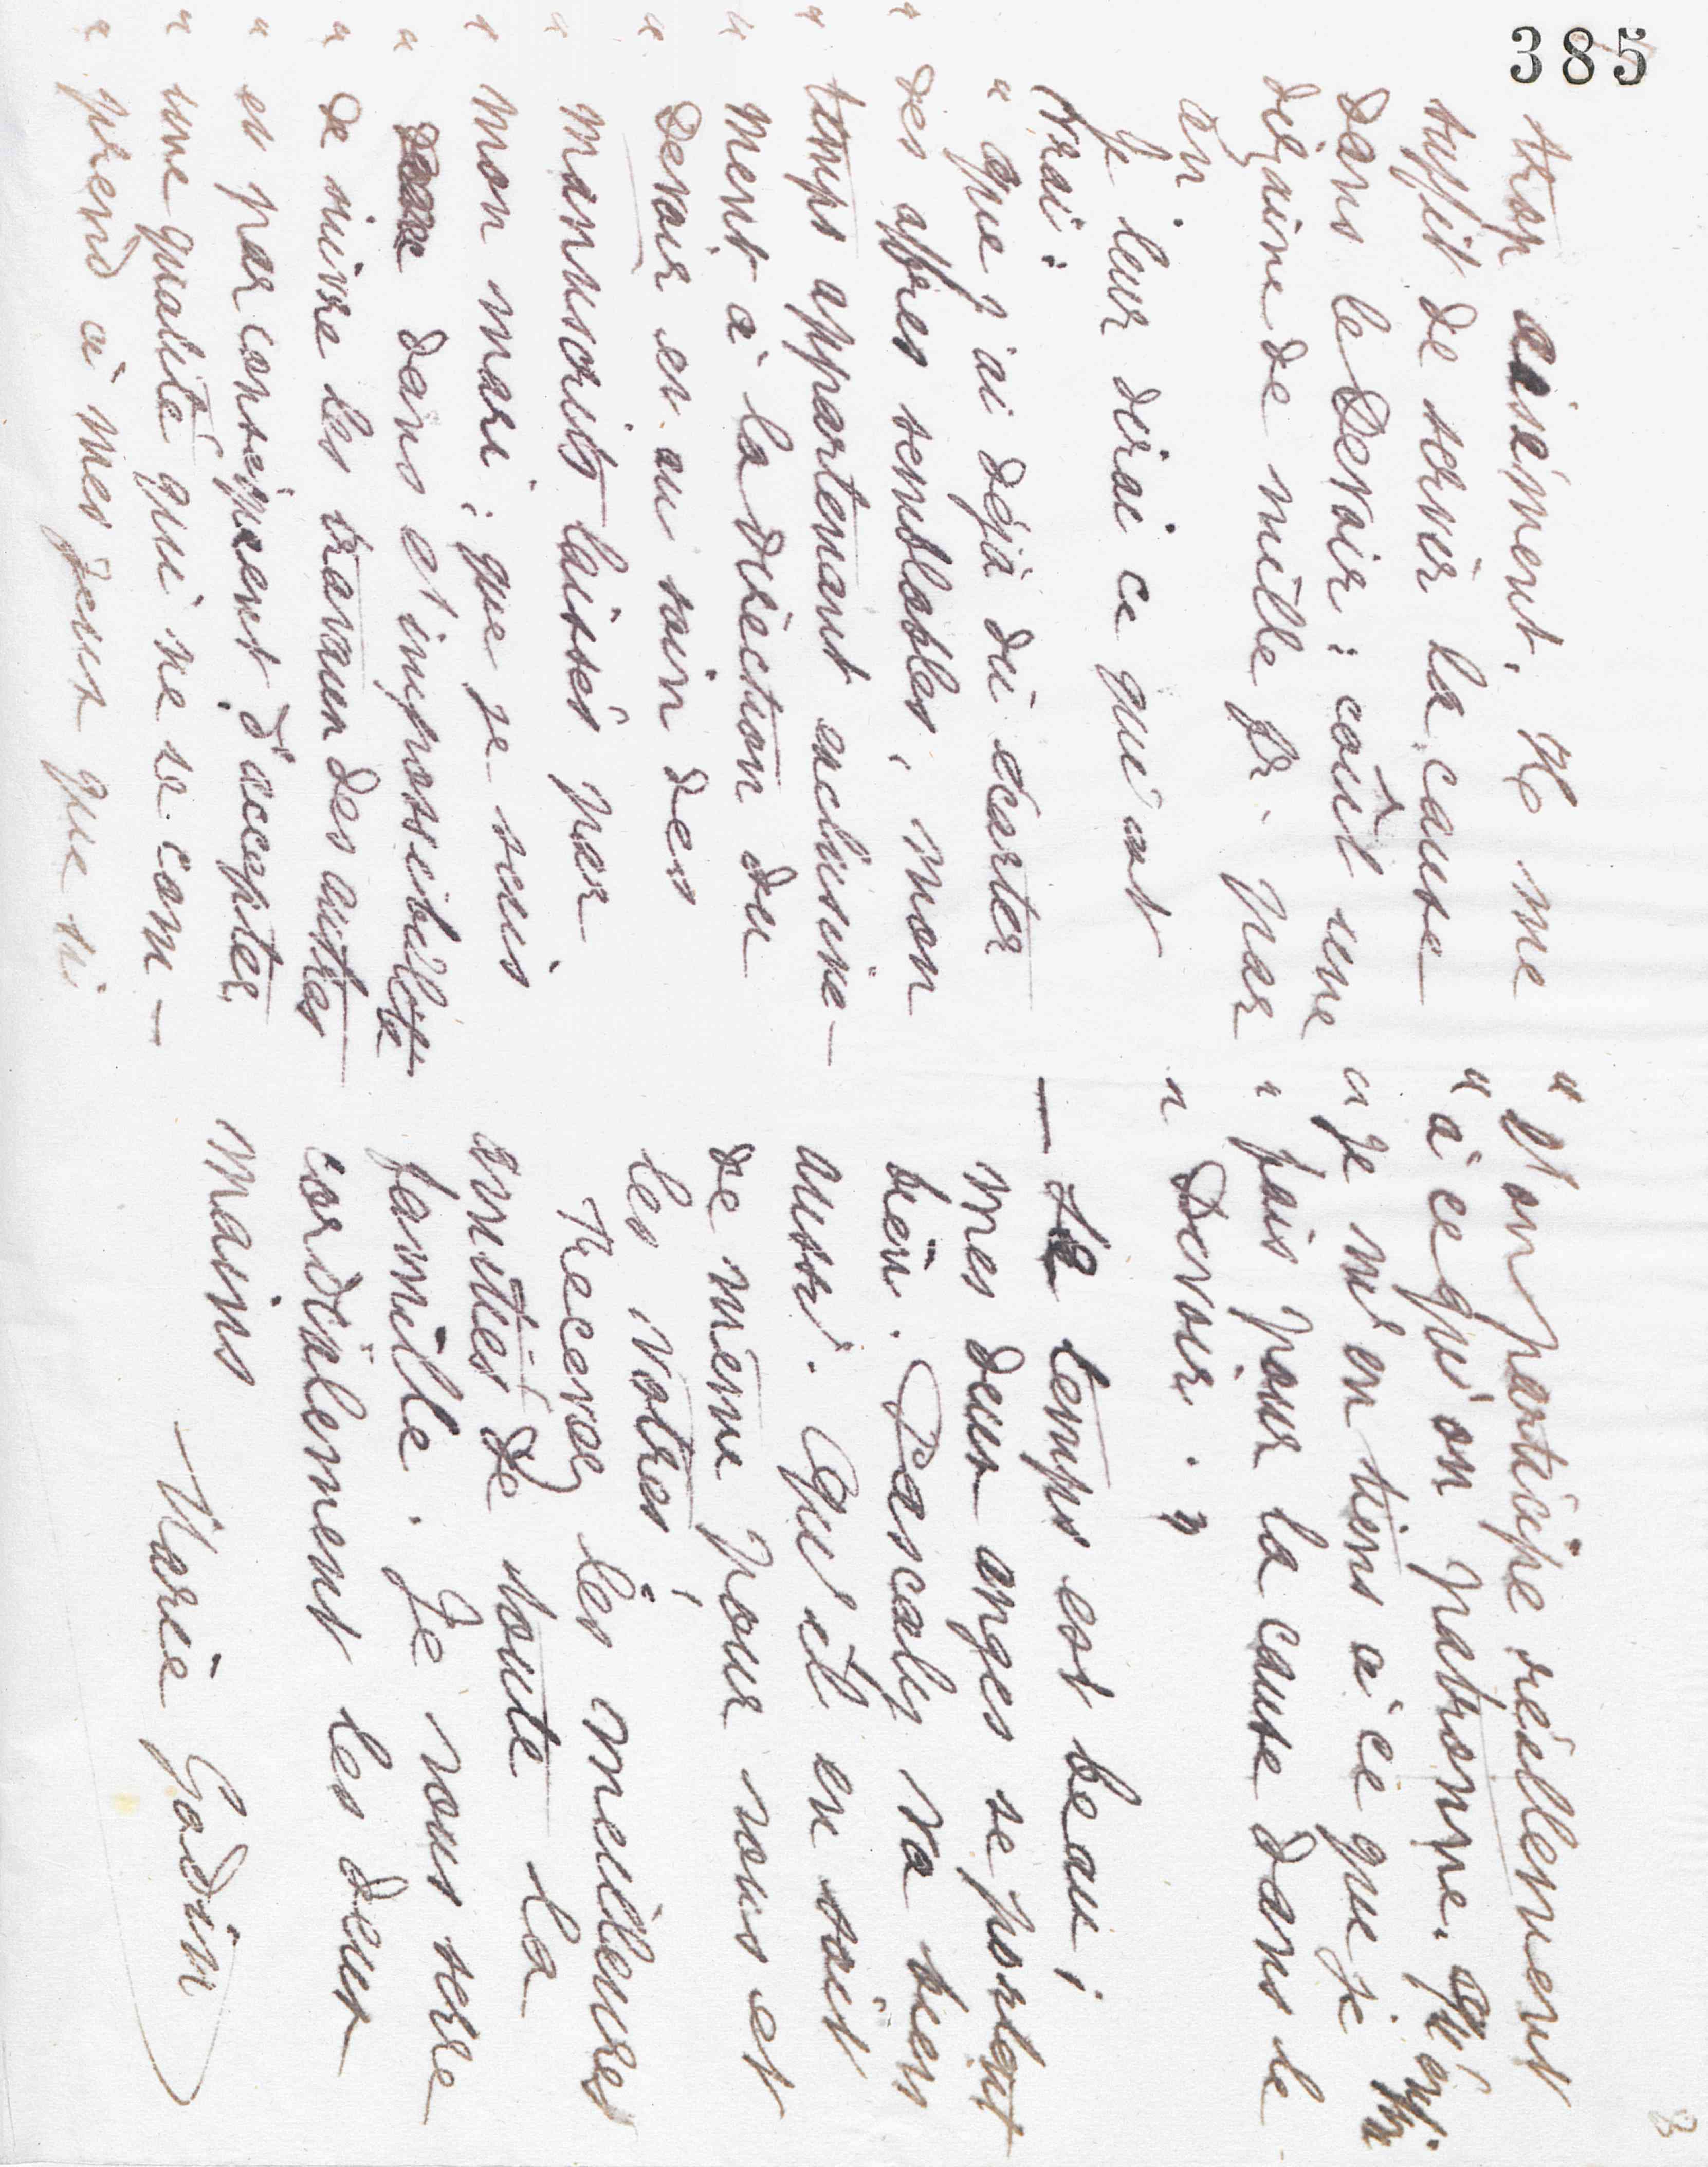 385
trop aisément. Il me
suffit de servir la cause
dans le Devoir : coût une
dizaine de mille fr. par
an.
Je leur dirai ce qui est
vrai :
" que j'ai déjà dû écarter
" des offres semblables, mon
" temps appartenant exclusive-
" ment à la direction du
" Devoir et au soin des
" manuscrits laissés par
" mon mari ; que je suis
" dans l'impossibilité
" de suivre les travaux des autres
" et par conséquent d'accepter
" une qualité qui ne se com-
" prend à mes yeux que si
" l'on participe réellement
" à ce qu'on patronne. Qu'enfin
" je m'en tiens à ce que je
" fais pour la cause dans le
" Devoir. "
— Le temps est beau ;
mes deux anges se portent
bien. Pascaly va bien
aussi. Qu'il en soit
de même pour vous et
les vôtres !
Recevez les meilleures
amitiés de toute la
famille. Je vous serre
cordialement les deux
mains
Marie Godin